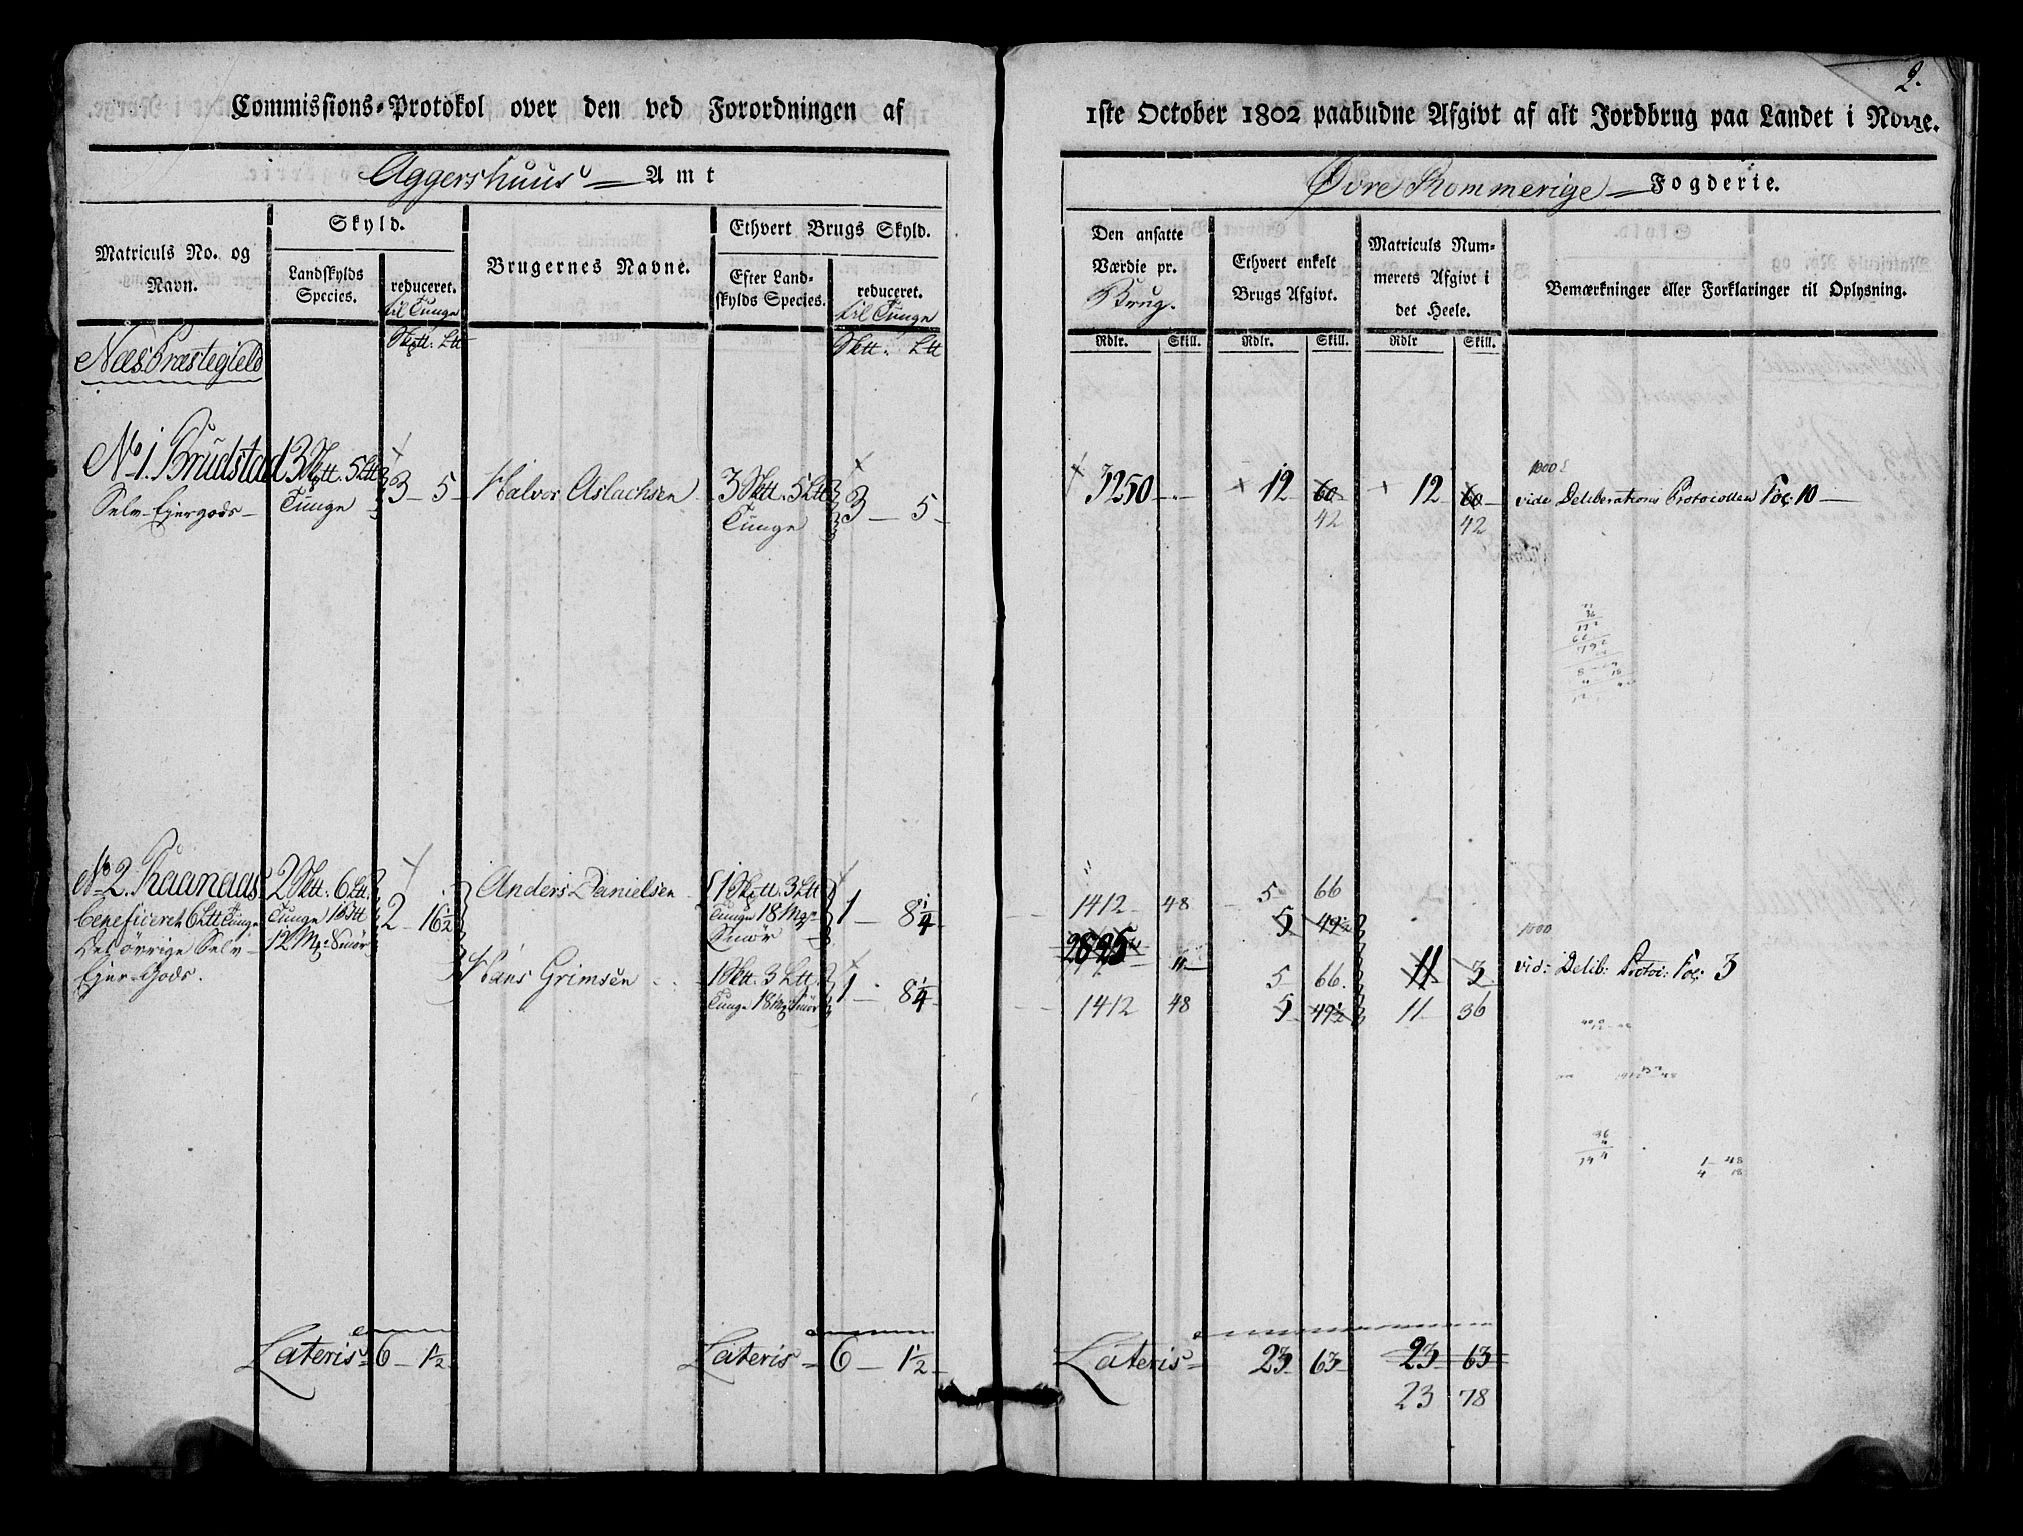 2.
Commissions-Protokol over den ved Forordningen af 1ste October 1802 paabudne Afgivt af alt Jordbrug paa Landet i Norge.
Aggershuus Amt
Øvre Rommerige Fogderie.
Matriculs No. og Navn.
Skyld.
Landskylds Species.
reduceret. til Tunge
Brugernes Navne.
Ethvert Brugs Skyld.
Efter Landskylds Species.
reduceret. til Tunge
Den ansatte Værdie pr. Brug.
Ethvert enkelt Brugs Afgivt.
Matriculs Nummerets Afgivt i det Heele.
Bemærkninger eller Forklaringer til Oplysning.
Sktt. Ltt
Sktt. Ltt
Rdlr. Skill. Rdlr. Skill. Rdlr Skill.
Næs Præstegield
No 1. Brudstad 3 Sktt. 5 Ltt 3 - 5 Halvor Aslachsen 3 Sktt. 5 Ltt 3 - 5 - 3250 - 12 60 12 60 vide Deliberations Protocollen Fol: 10
Selv-Ejergods Tunge Tunge 42 42
1000
No 2. Raanaas 2 Sktt. 6 Ltt. 2 - 16½ Anders Danielsen 1 Sktt. 3 Ltt 1 - 8¼ 1412 48 5 66
beneficeret 6 Ltt Tunge Tunge 1 Btt Tunge 18 Mrk 5 49½
Det øvrige Selv- 12 Mrk Smør Smør 2825
Ejer-Gods.
Hans Grimsen 1 Sktt. 3 Ltt. 1 - 8¼ 5 66. 11 3 vid: Delib: Protoc: Fol: 3
Tunge 18 Mrk Smør 1412 48 5 49½ 11 36
1000
Lateris 6 - ½ Lateris 6 - ½ Lateris 23 63 23 63
23 78